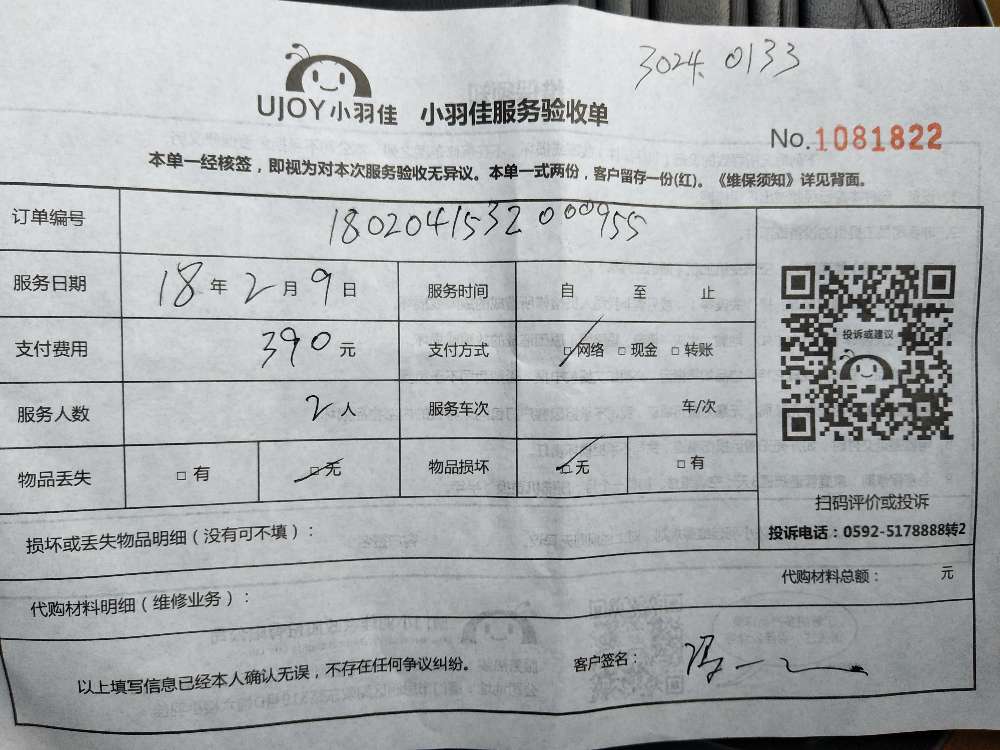 3024.0133
UJOY小羽佳 小羽佳服务验收单
No.1081822
本单一经核签，即视为对本次服务验收无异议。本单一式两份，客户留存一份(红)。《维保须知》详见背面。
订单编号 1802041532000955
服务日期 18年2月9日 服务时间 自 至 止
支付费用 390元 支付方式 □网络 □现金 □转账
服务人数 2人 服务车次 车/次
物品丢失 □有 □无 物品损坏 □无 □有
投诉或建议
扫码评价或投诉
投诉电话：0592-5178888转2
损坏或丢失物品明细（没有可不填）：
代购材料总额： 元
代购材料明细（维修业务）：
以上填写信息已经本人确认无误，不存在任何争议纠纷。
客户签名：